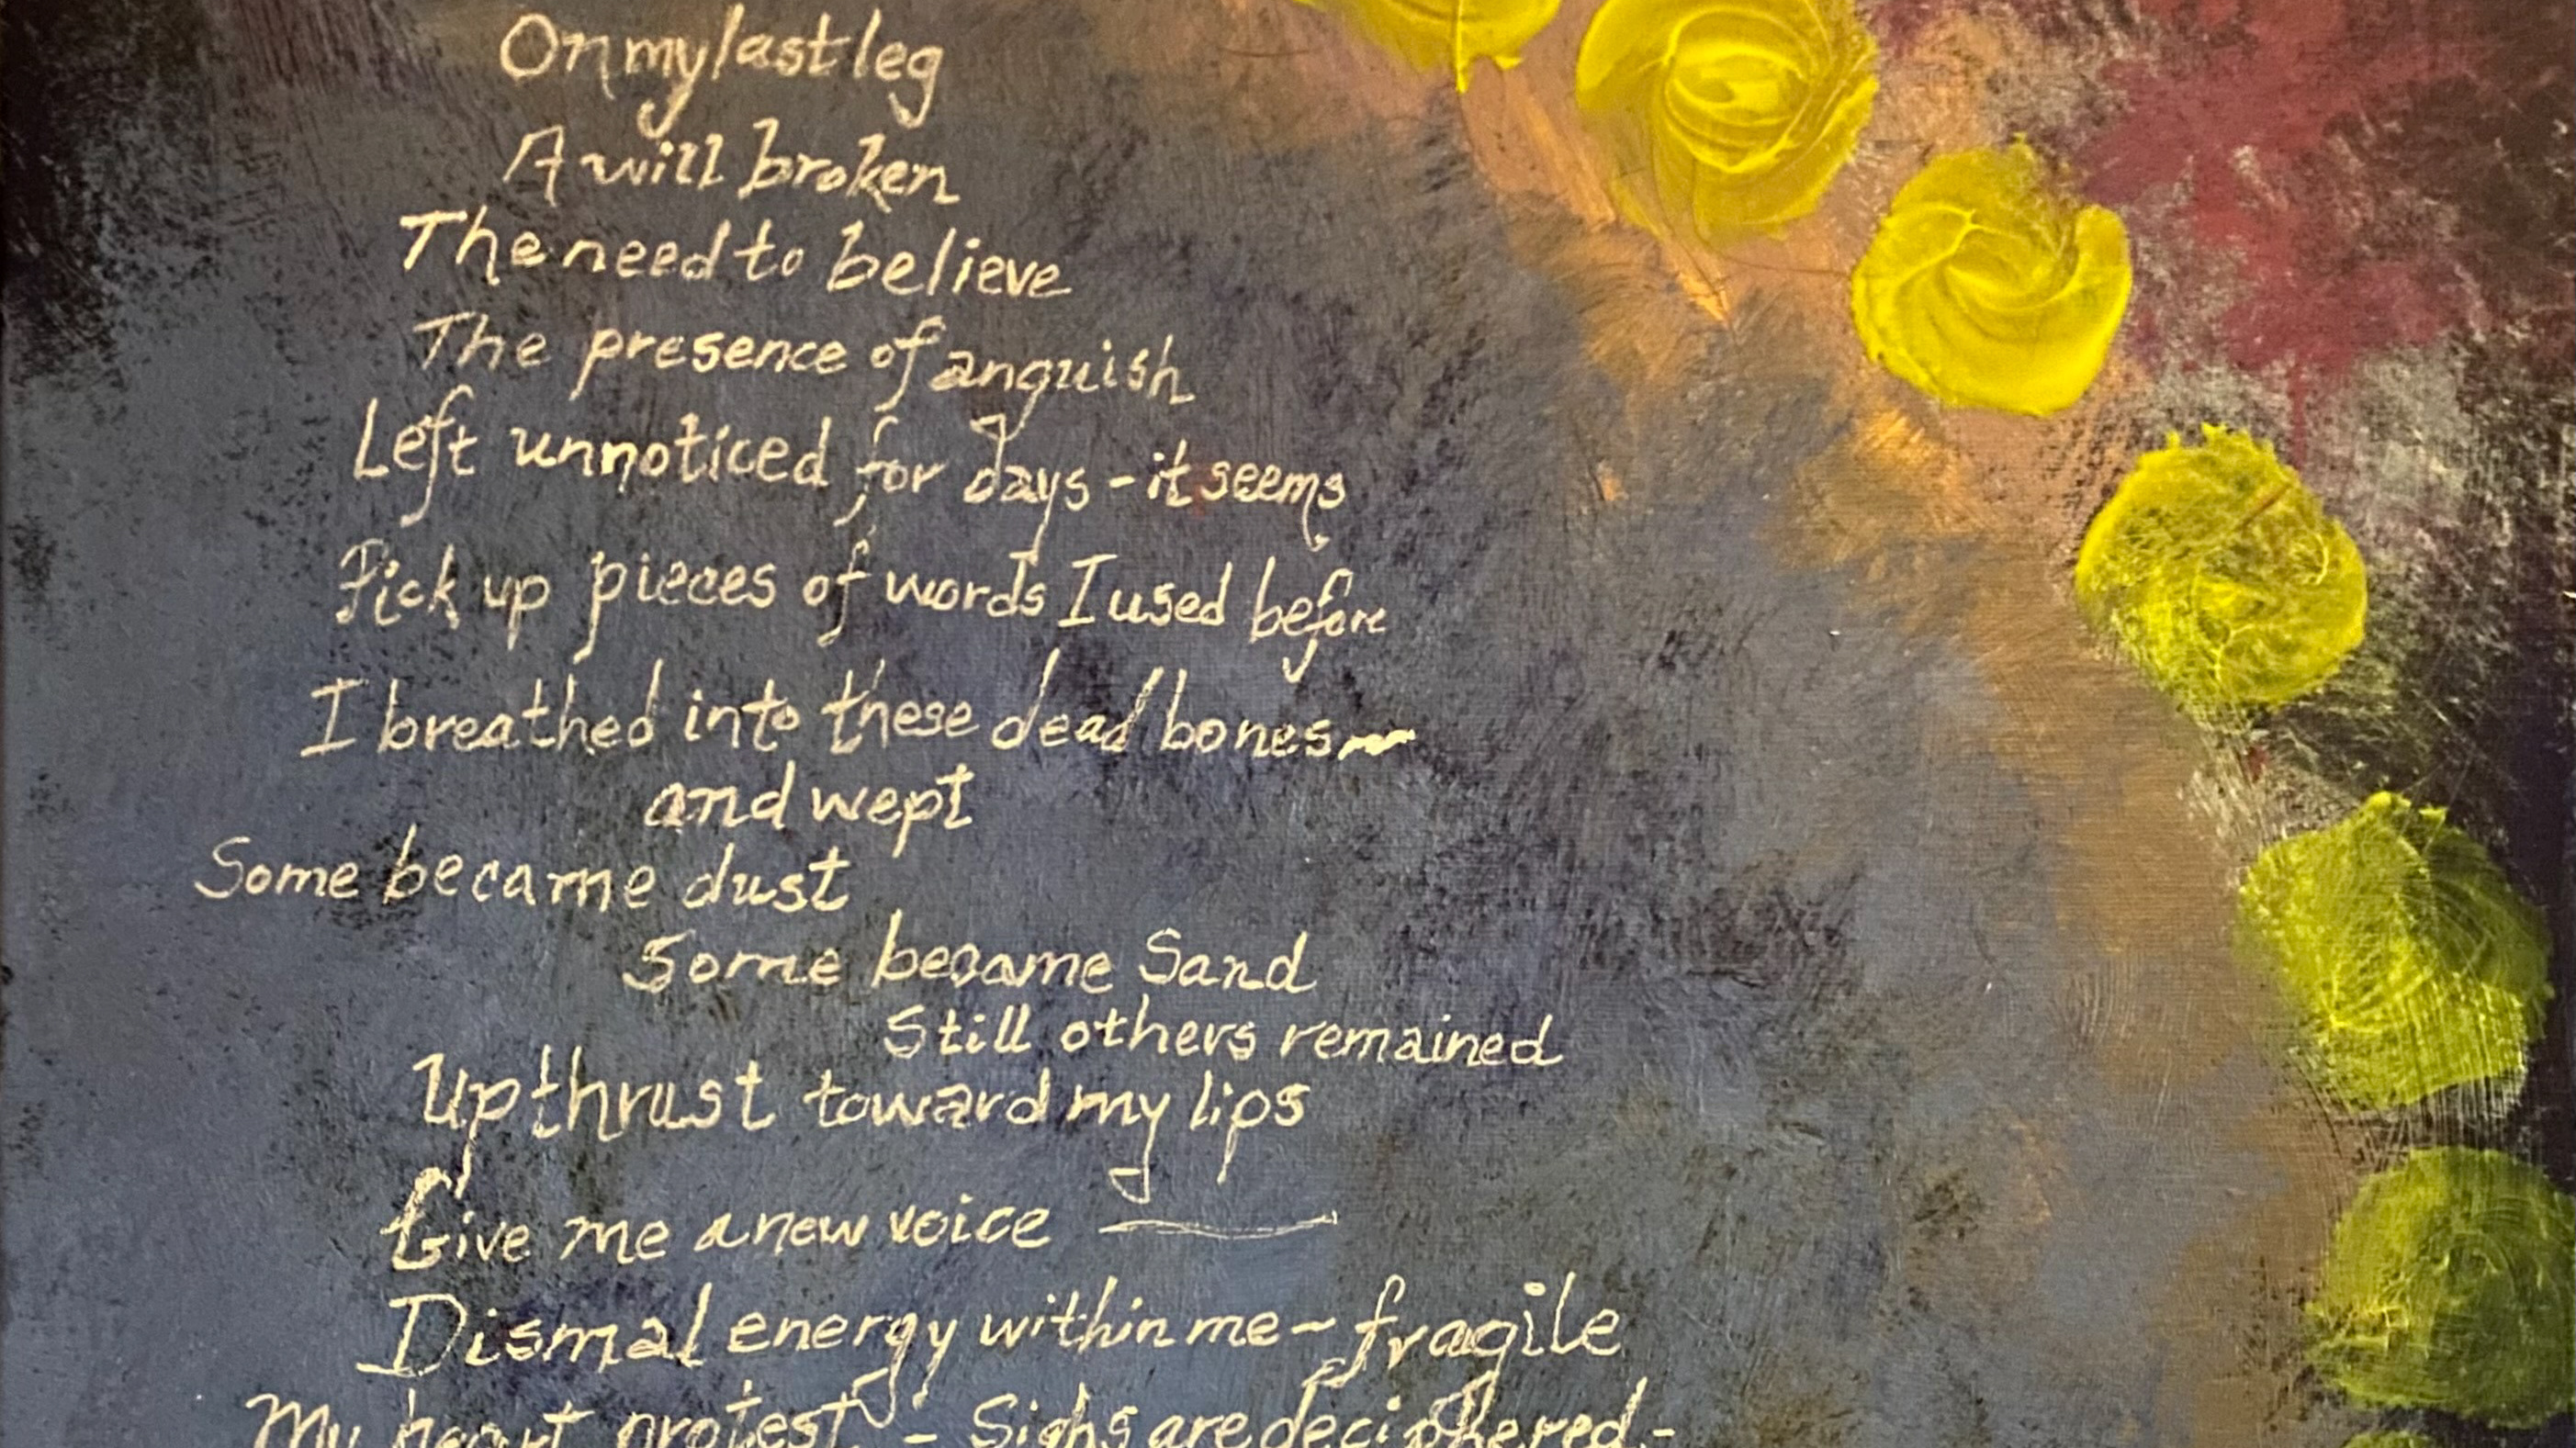 On my last leg
A will broken
The need to believe
The presence of anguish
Left unnoticed for days - it seems
Pick up pieces of words I used before
I breathed into these dead bones ~
and wept
Some became dust
Some became Sand
Still others remained
Upthrust toward my lips
Give me a new voice —
Dismal energy within me ~ fragile
My heart protest - Sighs are deciphered -